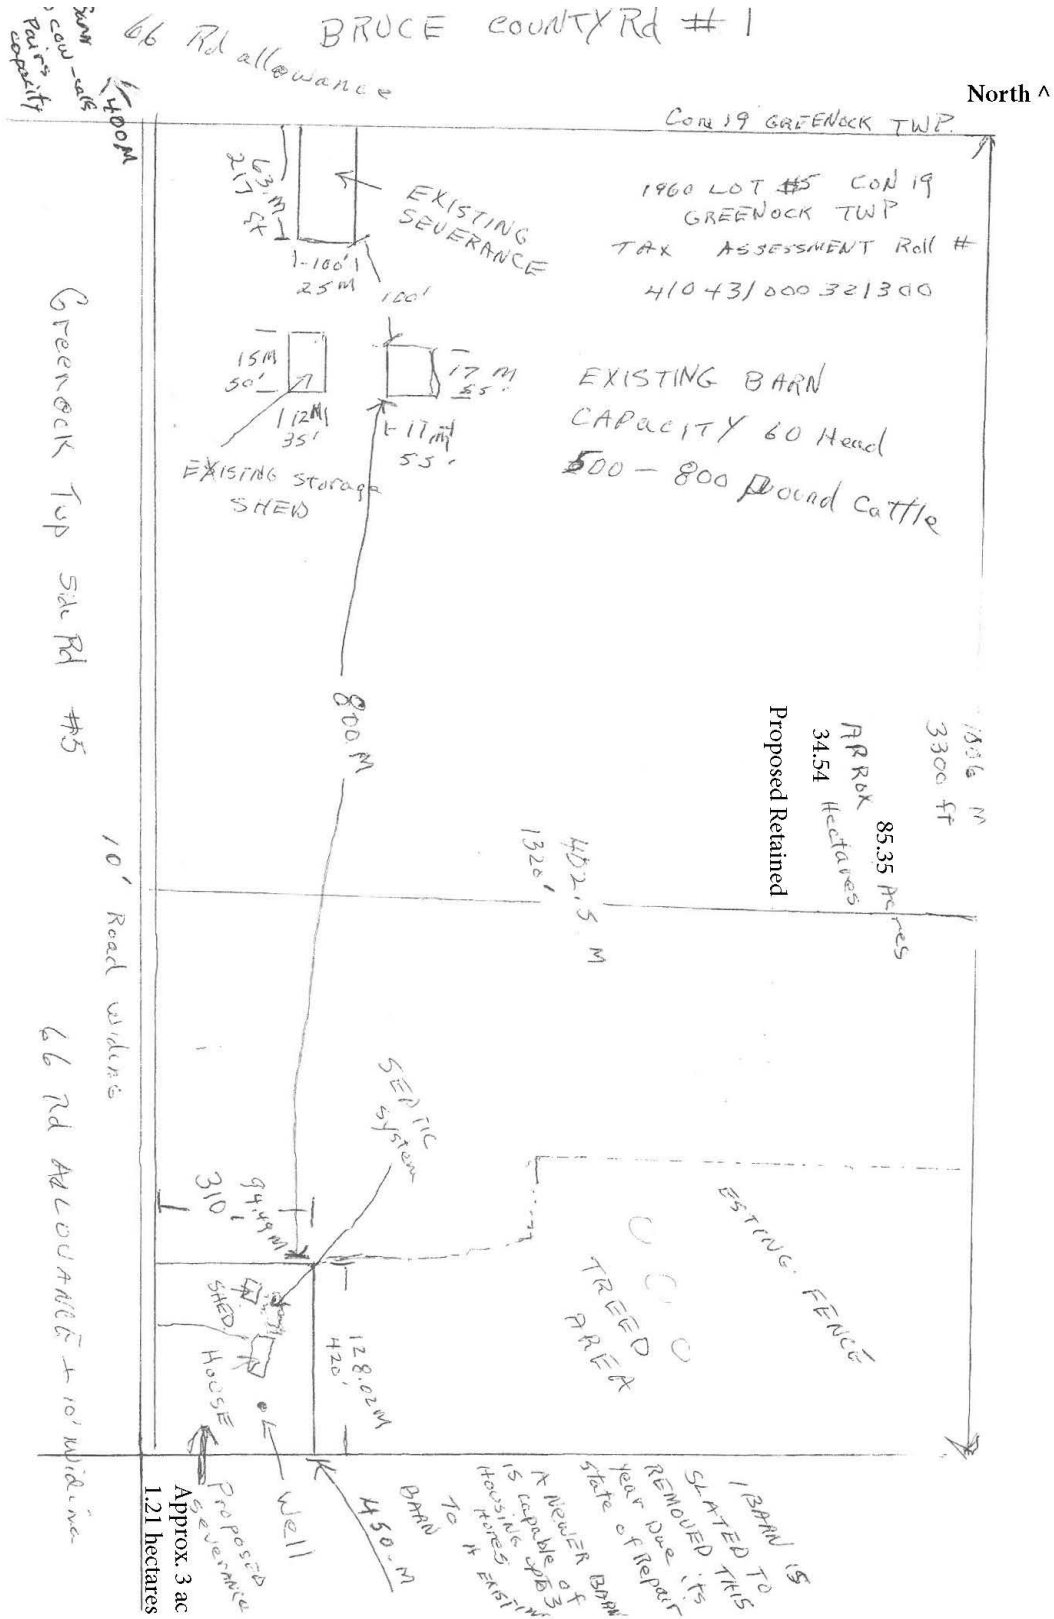 BRUCE COUNTY Rd # 1
66 Rd allowance
Barn
cow-calf
Pairs
capacity
400M
North ^
Con 19 GREENOCK TWP.
1960 LOT #5 CON 19
GREENOCK TWP
TAX ASSESSMENT Roll #
410431000321300
63.M
217 ft
EXISTING
SEVERANCE
1-100'1
25M
100'
15M
50'
12M
35'
17 M
55'
17M
55'
EXISTING Storage
SHED
EXISTING BARN
CAPACITY 60 Head
500 - 800 Pound Cattle
Greenock Twp Side Rd #5
800.M
1006 M
3300 ft
ARROX 85.35 Acres
34.54 Hectares
Proposed Retained
402.5 M
1320'
10' Road widing
66 Rd AllOUANCE + 10' widing
SEPTIC
System
94.49M
310'
ESTING. FENCE
TREED
AREA
SHED
HOUSE
128.02M
420'
Well
PROPOSED
Severance
Approx. 3 ac
1.21 hectares
450.M
TO A EXISTIN
BARN
1 BARN IS
SLATED TO
REMOVED THIS
year Due its
State of Repair
A NEWER BARN
is capable of
Housing upto 3
Hores